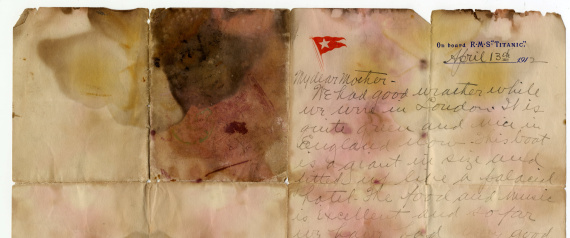 On board R·M·S "TITANIC".
April 13th 1912
My dear Mother-
We had good weather while
we were in London. It is
quite green and nice in
England now. This boat
is a giant in size and
fitted up like a palacial
hotel. The food and music
is excellent and so far
we have had very good